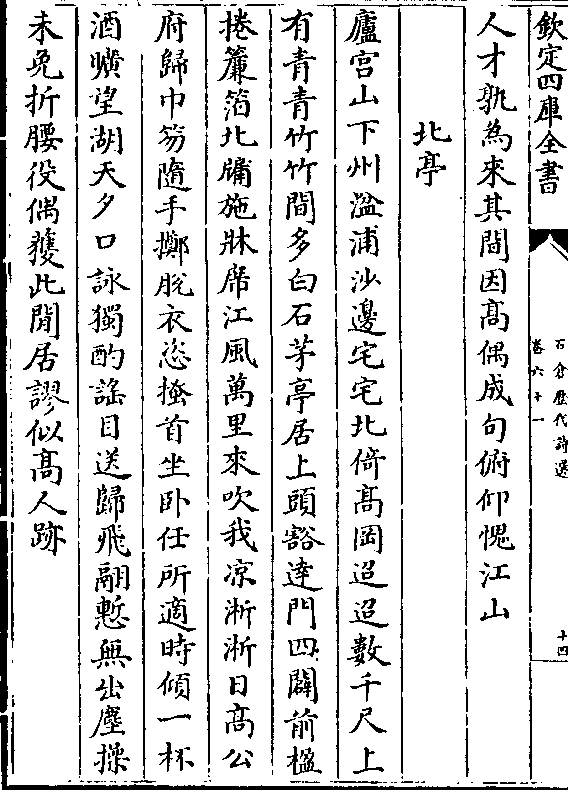 欽定四庫全書
石倉歷代詩選
卷六十一
十四
人才孰為來其間因髙偶成句俯仰愧江山
北亭
廬宫山下州湓浦沙邊宅宅北倚髙岡迢迢數千尺上
有青青竹竹間多白石茅亭居上頭豁達門四闢前楹
捲簾箔北牖施牀席江風萬里來吹我凉淅淅日髙公
府歸巾笏隨手擲脱衣恣搔首坐卧任所適時傾一杯
酒曠望湖天夕口詠獨酌謡目送歸飛翮慙無出塵操
未免折腰役偶獲此閒居謬似髙人跡